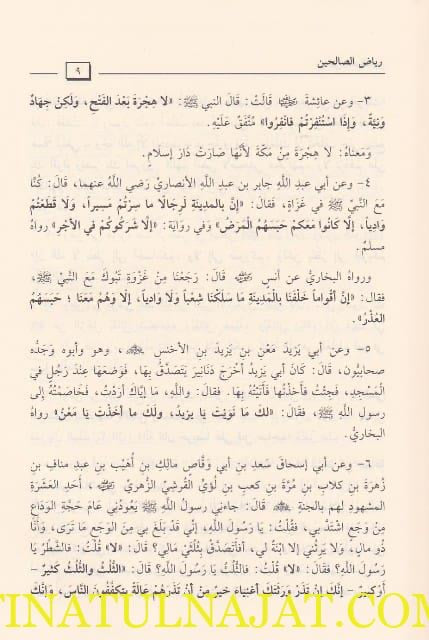 رياض الصالحين
٩
٣- وعن عائِشَةَ ﵂ قَالَتْ: قَالَ النبي ﷺ: «لا هِجْرَةَ بَعْدَ الفَتْحِ، وَلَكِنْ جِهَادٌ
وَنِيَّةٌ، وَإِذَا اسْتُنْفِرْتُمْ فانْفِرُوا» مُتَّفَقٌ عَلَيْهِ.
وَمَعناهُ: لا هِجْرَةَ مِنْ مَكّةَ لأَنَّهَا صَارَتْ دَارَ إسلامٍ.
٤- وعن أبي عبدِ اللَّهِ جابرِ بن عبدِ اللَّهِ الأنصاريِّ رَضي اللَّهُ عنهما، قَالَ: كُنَّا
مَعَ النَّبِيِّ ﷺ في غَزَاةٍ، فَقالَ: «إِنَّ بالمدِينَةِ لَرِجَالًا ما سِرْتُمْ مَسِيراً، وَلَا قَطَعْتُمْ
وَادِياً، إلَّا كَانُوا مَعَكُمْ حَبَسَهُمُ الْمَرَضُ» وَفي روايَة: «إلَّا شَرَكُوكُمْ في الأَجْرِ» رواهُ
مسلمٌ.
ورواهُ البخاريُّ عن أنسٍ ﵁ قَالَ: رَجَعْنَا مِنْ غَزْوَةِ تَبُوكَ مَعَ النَّبِيِّ ﷺ،
فقال: «إنَّ أقواماً خَلْفَنَا بِالْمَدِينَةِ مَا سَلَكْنَا شِعْباً وَلَا وَادِياً، إلَّا وَهُمْ مَعَنَا ؛ حَبَسَهُمُ
العُذْرُ».
٥- وعن أبي يَزيدَ مَعْنِ بنِ يَزيدَ بنِ الأخنسِ ﵃، وهو وأبوه وَجَدُّه
صحابيُّون، قال: كَانَ أبي يَزِيدُ أَخْرَجَ دَنَانِيرَ يَتَصَدَّقُ بِهَا، فَوَضَعَهَا عِنْدَ رَجُلٍ في
الْمَسْجِدِ، فَجِئْتُ فَأَخَذْتُها فَأَتَيْتُهُ بِهَا. فقالَ: واللَّهِ، مَا إيَّاكَ أَرَدْتُ، فَخَاصَمْتُهُ إلى
رسولِ اللَّهِ ﷺ، فَقَالَ: «لكَ مَا نَوَيْتَ يَا يَزِيدُ، ولَكَ ما أَخَذْتَ يَا مَعْنُ» رواه
البخاريُّ.
٦- وعن أبي إسحاقَ سَعدِ بنِ أبي وَقّاصٍ مالِكِ بنِ أُهَيْبِ بنِ عبدِ منافِ بنِ
زُهرَةَ بنِ كلابِ بنِ مُرَّةَ بنِ كعبِ بنِ لُؤَيٍّ القُرشِيِّ الزُّهريِّ ﵁، أَحَدِ العَشَرَةِ
المشهودِ لهم بالجنةِ ﵃ قَالَ: جاءني رسولُ اللَّهِ ﷺ يَعُودُني عَامَ حَجَّةِ الوَدَاعِ
مِنْ وَجَعٍ اشْتَدَّ بي، فقُلْتُ: يَا رَسُولَ اللَّهِ، إنِّي قَدْ بَلَغَ بي مِنَ الوَجَعِ مَا تَرَى، وَأَنَا
ذُو مالٍ، وَلَا يَرِثُنِي إلا ابْنَةٌ لِي، أفَأَتَصَدَّقُ بِثُلُثَيْ مَالِي؟ قَالَ: «لا» قُلْتُ: فالشَّطْرُ يَا
رَسُولَ اللَّهِ؟ فقالَ: «لا» قُلْتُ: فالثُّلُثُ يَا رَسُولَ اللَّهِ؟ قَالَ: «الثُّلُثُ والثُّلُثُ كَثِيرٌ -
أوْ كَبِيرٌ - إنَّكَ إنْ تَذَرْ وَرَثَتَكَ أغْنِيَاءَ خَيرٌ مِنْ أنْ تَذَرَهُمْ عَالَةً يَتَكفَّفُونَ النَّاسَ، وَإنَّكَ
TINATULNAJAT.COM